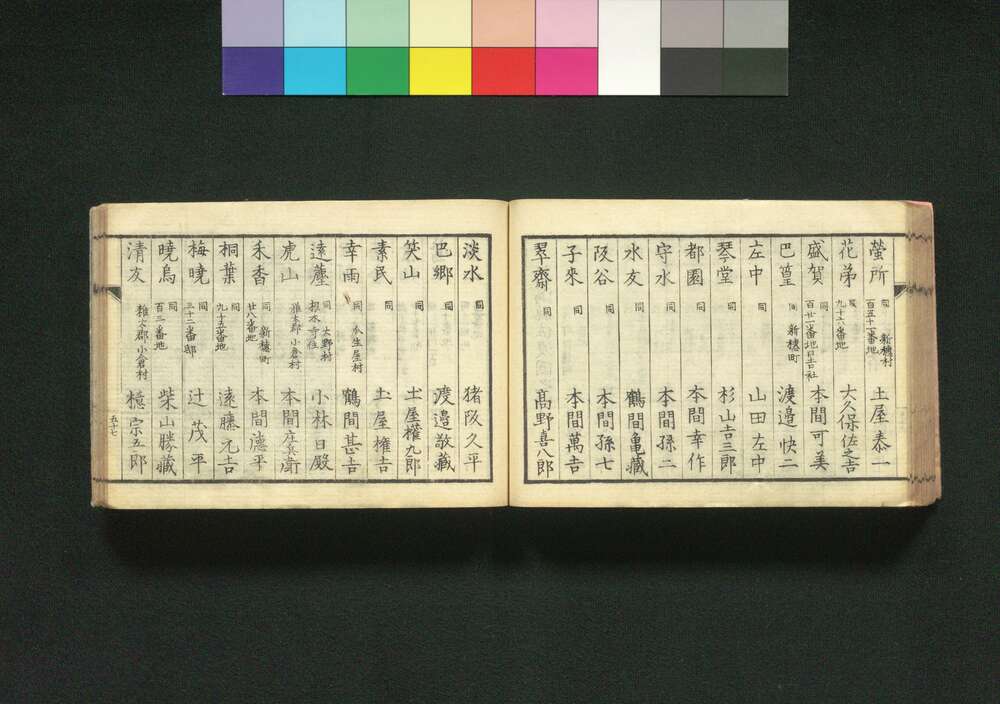 螢所 同 新穂村 百五十一番地 土屋泰一
花弟 同 九十六番地 大久保佐之吉
盛賀 同 百廿一番地日吉社 本間可美
巴篁 同 新穂町 渡邉快二
左中 同 山田左中
琴堂 同 杉山吉三郎
都園 同 本間幸作
守水 同 本間孫二
水友 同 鶴間亀藏
阪谷 同 本間孫七
子來 同 本間萬吉
翠齋 同 髙野喜八郎
淡水 同 猪阪久平
巴郷 同 渡邉敬藏
笑山 同 土屋權九郎
素民 同 土屋権吉
幸雨 同 瓜生屋村 鶴間甚吉
遠塵 同 大野村 根本寺住 小林日殿
虎山 同 雑太郡小倉村 本間庄兵衛
禾香 同 新穂町 廿八番地 本間德平
桐葉 同 九十五番地 遠藤元吉
梅曉 同 三十二番邸 辻茂平
曉烏 同 百三番地 柴山勝藏
清友 雑太郡小倉村 宗五郎
五十七